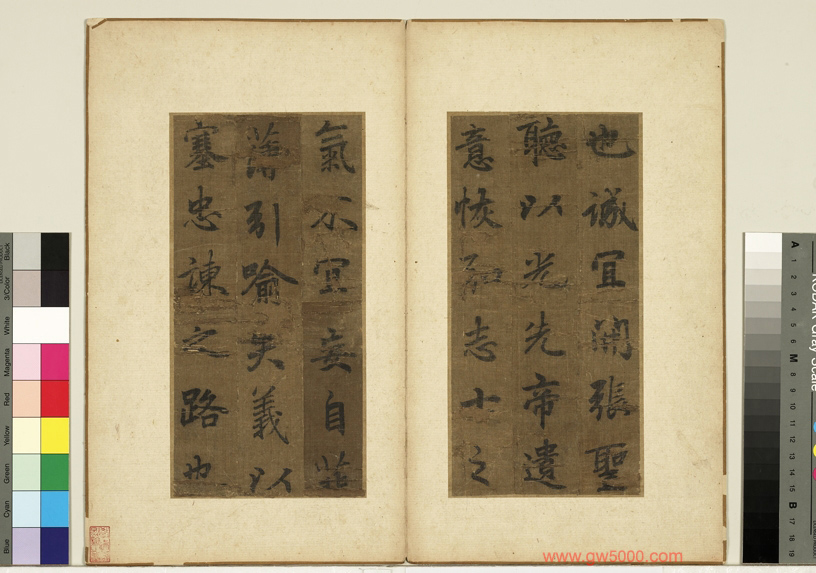 也誠宜開張聖
聽以光先帝遺
悳恢弘志士之
氣不宜妄自菲
薄引喻失義以
塞忠諫之路也
www.gw5000.com
Black
3/Color
White
Magenta
Red
Yellow
Green
Cyan
Blue
A 1 2 3 4 5 6 M 8 9 10 11 12 13 14 15 B 17 18 19
Gray Scale